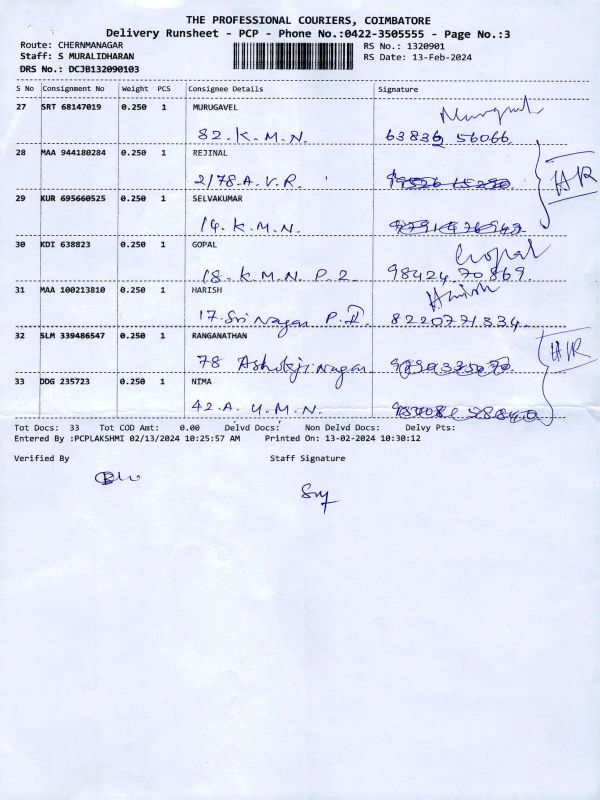 THE PROFESSIONAL COURIERS, COIMBATORE
Delivery Runsheet - PCP - Phone No.:0422-3505555 - Page No.:3
Route: CHERNMANAGAR
RS No.: 1320901
Staff: S MURALIDHARAN
RS Date: 13-Feb-2024
DRS No.: DCJB132090103
S No Consignment No Weight PCS Consignee Details Signature
27 SRT 68147019 0.250 1 MURUGAVEL
82. K. M. N. 63836 56066
28 MAA 944180284 0.250 1 REJINAL
2/78. A. V. R.
29 KUR 695660525 0.250 1 SELVAKUMAR
14. K. M. N.
30 KDI 638823 0.250 1 GOPAL Gopal
18. K. M. N. P. 2. 98424.70869.
31 MAA 100213810 0.250 1 HARISH Harish
17. Sri Nagar P. II. 8220771334.
32 SLM 339486547 0.250 1 RANGANATHAN
78 Ashokji nagar
33 DDG 235723 0.250 1 NIMA
42. A. U. M. N.
Tot Docs: 33 Tot COD Amt: 0.00 Delvd Docs: Non Delvd Docs: Delvy Pts:
Entered By :PCPLAKSHMI 02/13/2024 10:25:57 AM Printed On: 13-02-2024 10:30:12
Verified By Staff Signature